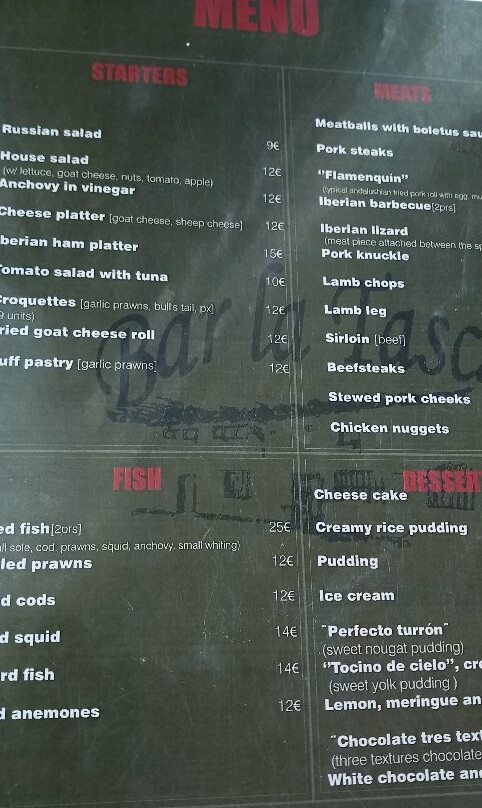 MENU
STARTERS
Russian salad 9€
House salad 12€
(w/ lettuce, goat cheese, nuts, tomato, apple)
Anchovy in vinegar 12€
Cheese platter [goat cheese, sheep cheese] 12€
berian ham platter 15€
omato salad with tuna 10€
roquettes [garlic prawns, bull's tail, px] 12€
9 units)
ried goat cheese roll 12€
uff pastry [garlic prawns] 12€
MEATS
Meatballs with boletus sau
Pork steaks
"Flamenquin"
(typical andalushian fried pork roll with egg, mu
Iberian barbecue[2prs]
Iberian lizard
(meat piece attached between the sp
Pork knuckle
Lamb chops
Lamb leg
Sirloin [beef]
Beefsteaks
Stewed pork cheeks
Chicken nuggets
Bar la Tasc
FISH
ed fish[2prs] 25€
ll sole, cod, prawns, squid, anchovy, small whiting)
led prawns 12€
d cods 12€
d squid 14€
rd fish 14€
d anemones 12€
DESSER
Cheese cake
Creamy rice pudding
Pudding
Ice cream
"Perfecto turrón"
(sweet nougat pudding)
"Tocino de cielo", cre
(sweet yolk pudding )
Lemon, meringue an
"Chocolate tres text
(three textures chocolate
White chocolate and